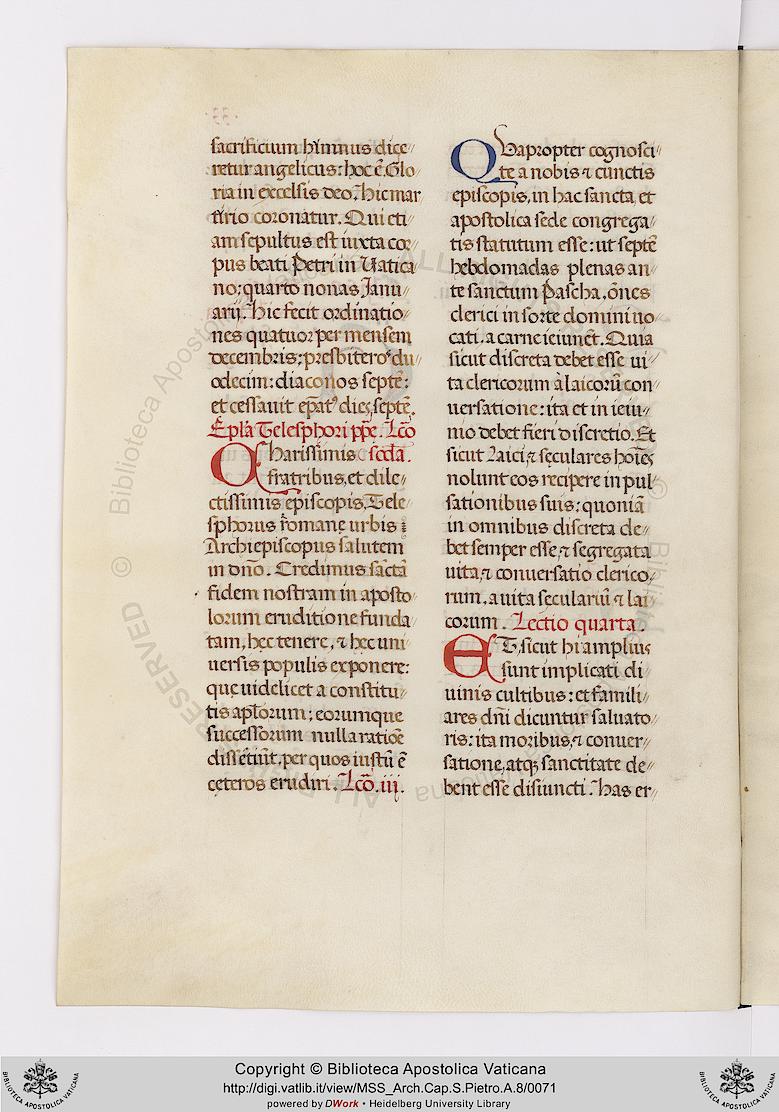 sacrificium hymnus dice
retur angelicus: hoc ē, Glo
ria in excelsis deo. hic mar
tirio coronatur. Qui eti
am sepultus est iuxta cor
pus beati Petri in Uatica
no; quarto nonas Janu
arij. Hic fecit ordinatio
nes quatuor per mensem
decembris; presbiteros du
odecim: diaconos septē:
et cessauit ep̄at⁹ dies septē.
Ep̄la Telesphori pp̄e. Lc̄o
Charissimis sc̄da.
fratribus, et dile
ctissimis episcopis, Tele
sphorus romanę urbis
Archiepiscopus salutem
in dn̄o. Credimus sāctā
fidem nostram in aposto
lorum eruditione funda
tam, hec tenere, ⁊ hec uni
uersis populis exponere:
quę uidelicet a constitu
tis ap̄lorum; eorumque
successorum nulla ratiōe
dissētiūt, per quos iustū ē
cęteros erudiri. Lc̄o. iij.
QUapropter cognosci
te a nobis ⁊ cunctis
episcopis, in hac sancta et
apostolica sede congrega
tis statutum esse: ut septē
hebdomadas plenas an
te sanctum Pascha, ōnes
clerici in sorte domini uo
cati, a carne ieiunēt. Quia
sicut discreta debet esse ui
ta clericorum à laicorū con
uersatione: ita et in ieiu
nio debet fieri discretio. Et
sicut Laici, ⁊ sęculares hoīes
nolunt eos recipere in pul
sationibus suis: quoniā
in omnibus discreta de
bet semper esse, ⁊ segregata
uita, ⁊ conuersatio clerico
rum, a uita seculariū ⁊ lai
corum. Lectio quarta.
ET, sicut hi amplius
sunt implicati di
uinis cultibus: et famili
ares dn̄i dicuntur saluato
ris: ita moribus, ⁊ conuer
satione, atq; sanctitate de
bent esse disiuncti. Has er
© Biblioteca Apostolica Vaticana
ALL RIGHTS RESERVED
Copyright © Biblioteca Apostolica Vaticana
http://digi.vatlib.it/view/MSS_Arch.Cap.S.Pietro.A.8/0071
powered by DWork • Heidelberg University Library
BIBLIOTECA APOSTOLICA VATICANA
BIBLIOTECA APOSTOLICA VATICANA